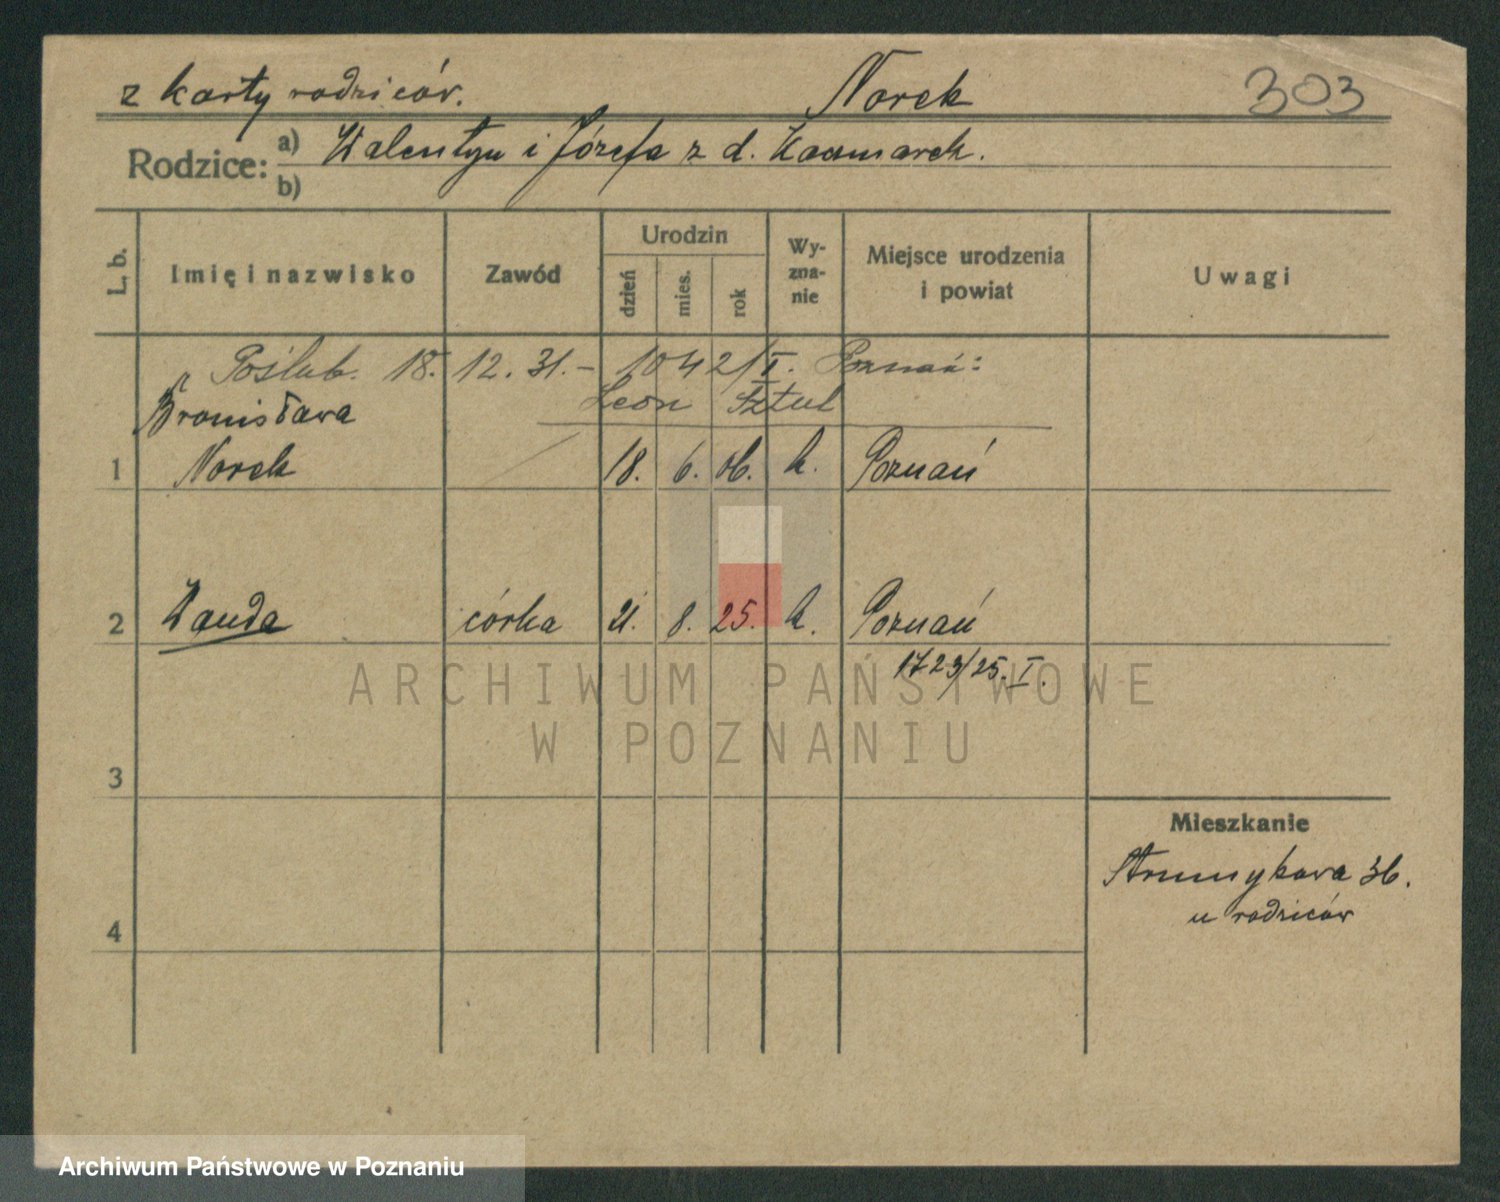 z karty rodziców. Norek 303
Rodzice: a) Walentyn i Józefa z d. Kaczmarek.
b)
L. b. Imię i nazwisko Zawód Urodzin dzień mies. rok Wy-zna-nie Miejsce urodzenia i powiat Uwagi
Poślub. 18. 12. 31. – 1042/I. Poznań:
Bronisława Leon Sztul
1 Norek 18. 6. 06. k. Poznań
2 Wanda córka 21. 8. 25. k. Poznań
1723/25. I.
ARCHIWUM PAŃSTWOWE
W POZNANIU
3
Mieszkanie
Strumykowa 36.
u rodziców
4
Archiwum Państwowe w Poznaniu